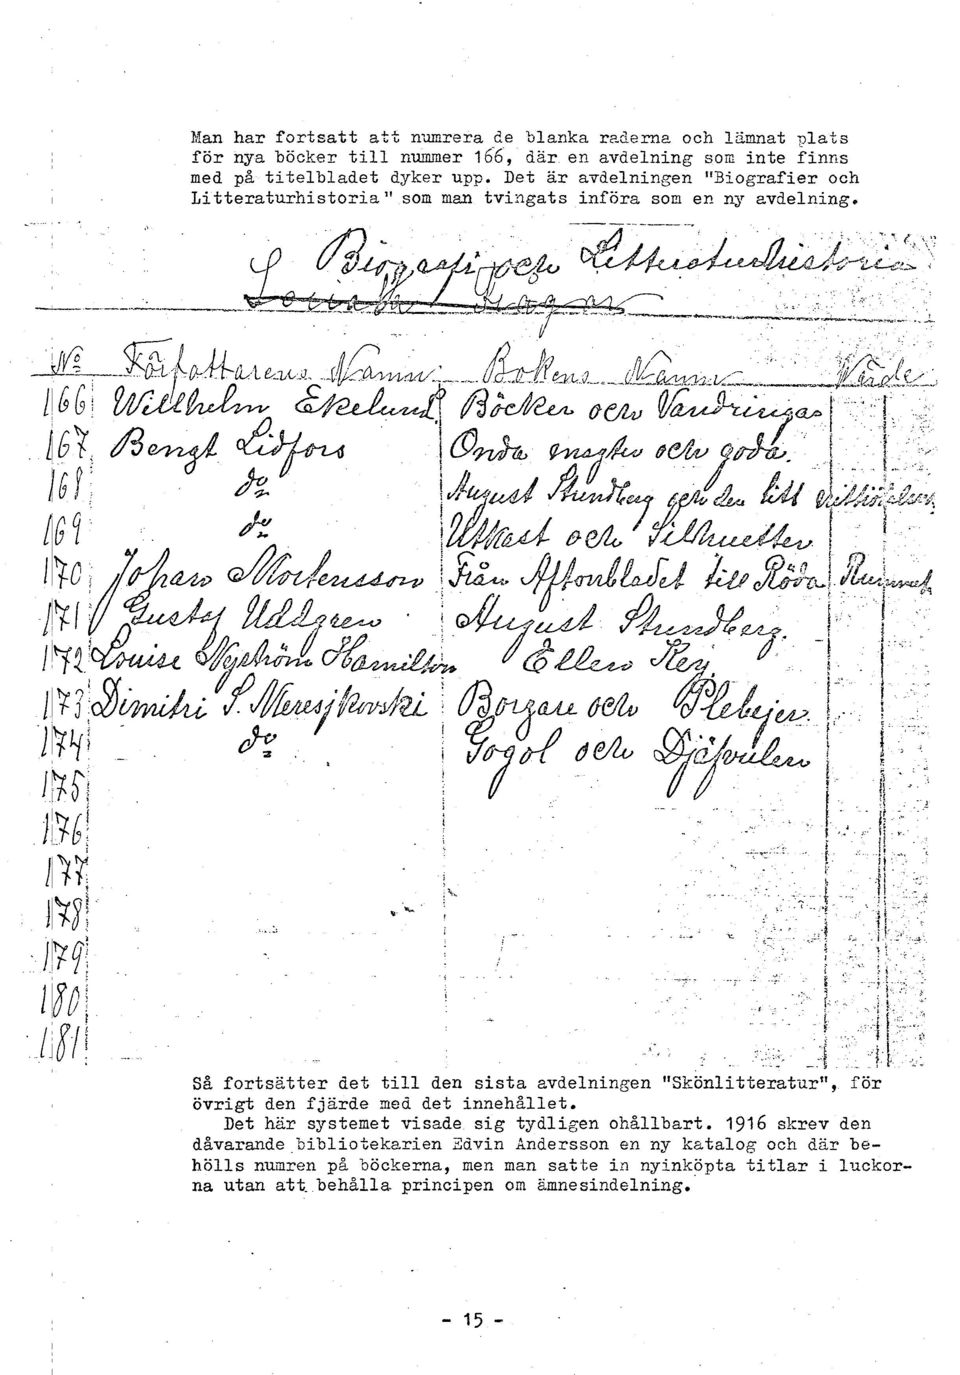 Man har fortsatt att numrera de blanka raderna och lämnat plats
för nya böcker till nummer 166, där en avdelning som inte finns
med på titelbladet dyker upp. Det är avdelningen "Biografier och
Litteraturhistoria" som man tvingats införa som en ny avdelning.
Biografi och Litteraturhistoria
Sociala Frågor
No Författarens Namn Bokens Namn Värde
166 Willhelm Ekelund Böcker och Vandringar
167 Bengt Lidfors Onda magter och goda.
168 do August Strindberg och den litt
169 do Utkast och Silhuetter
170 Johan Mortensson Från Aftonbladet till Röda Rummet
171 Gustaf Uddgren August Strindberg.
172 Louise Nyström Hamilton Ellen Key
173 Dimitri S. Meresjkovski Borgare och Plebejer.
174 do Gogol och Djäfvulen
175
176
177
178
179
180
181
Så fortsätter det till den sista avdelningen "Skönlitteratur", för
övrigt den fjärde med det innehållet.
Det här systemet visade sig tydligen ohållbart. 1916 skrev den
dåvarande bibliotekarien Edvin Andersson en ny katalog och där be-
hölls numren på böckerna, men man satte in nyinköpta titlar i luckor-
na utan att behålla principen om ämnesindelning.
- 15 -